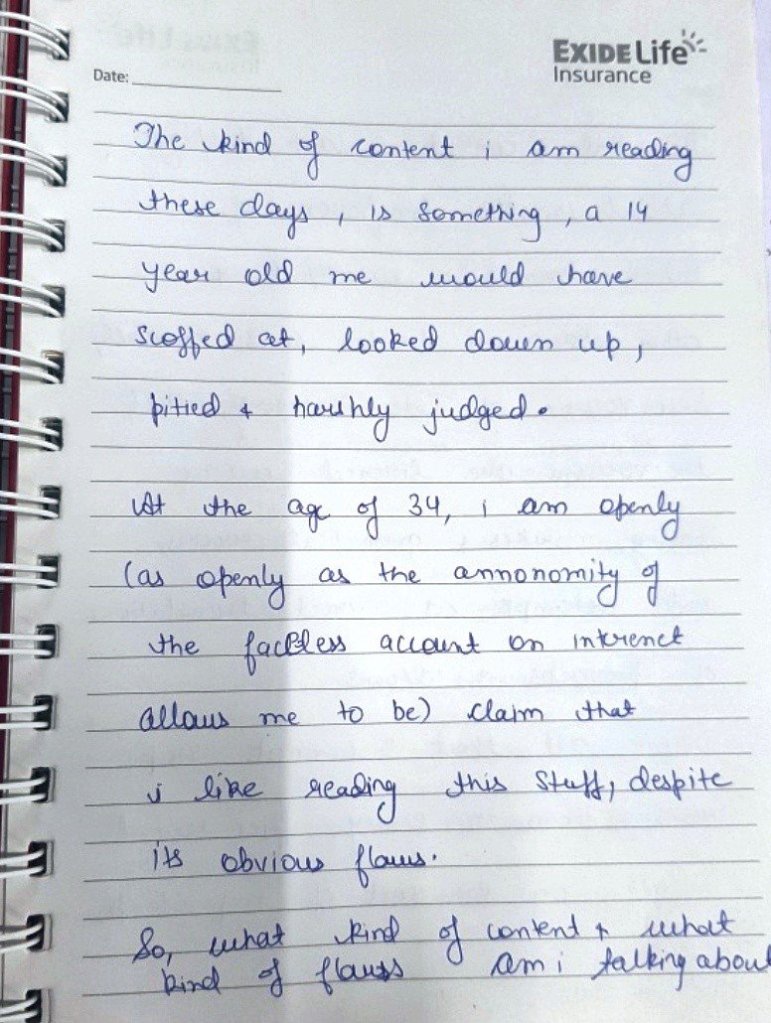 EXIDE Life
Insurance
Date:
The kind of content i am reading
these days, is something, a 14
year old me would have
scoffed at, looked down up,
pitied & harshly judged.
At the age of 34, i am openly
(as openly as the annonomity of
the faceless account on internet
allows me to be) claim that
i like reading this stuff, despite
its obvious flaws.
So, what kind of content & what
kind of flaws am i talking about